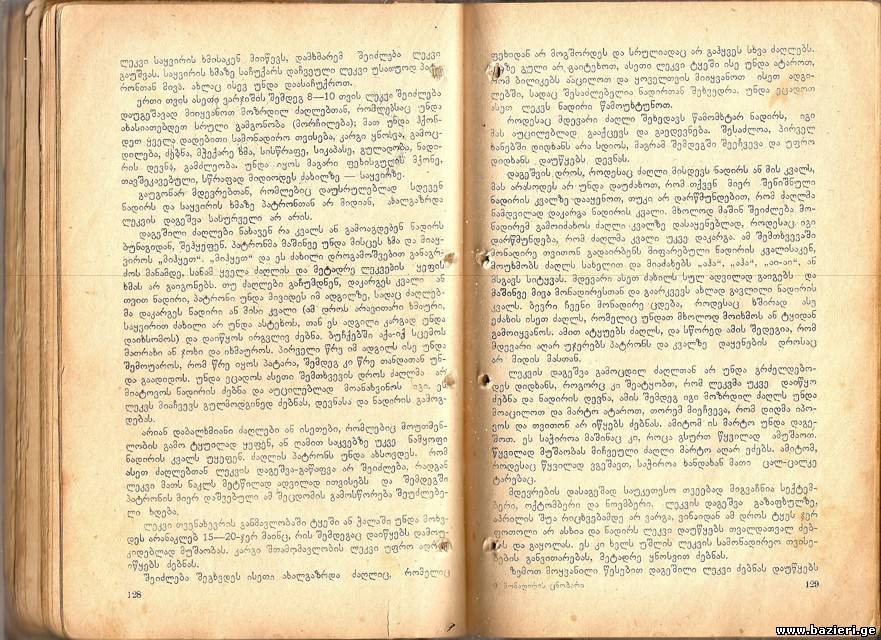 ლეკვი საყვირის ხმისაკენ მიიწევს, დამხმარემ შეიძლება ლეკვი
გაუშვას. საყვირის ხმაზე საჩუქარს დაჩვეული ლეკვი უსათუოდ
რონთან მივა. ახლაც ისევ უნდა დაასაჩუქროთ.
ერთი თვის ასეთი ვარჯიშის შემდეგ 8—10 თვის ლეკვი შეიძლება
დაუგეშავად მიიყვანოთ მოზრდილ ძაღლებთან, რომლებსაც უნდა
ახასიათებდეთ სრული გამგონობა (მორჩილება); მათ უნდა ჰქონ-
დეთ ყველა დადებითი სამონადირო თვისება, კარგი ყნოსვა, გამოც-
დილება, ძებნა, მჭექარე ხმა, სისწრაფე, სიკაპასე, გულადობა, ნადი-
რის დევნა, გამძლეობა. უნდა იყოს მაგარი ფეხისგულის მქონე,
თავშეკავებული, სწრაფად მიდიოდეს ძახილზე — საყვირზე.
გაუგონარ მდევრებთან, რომლებიც დაუსრულებლად სდევენ
ნადირს და საყვირის ხმაზე პატრონთან არ მიდიან, ახალგაზრდა
ლეკვის დაგეშვა სასურველი არ არის.
დაგეშილი ძაღლები ნახავენ რა კვალს ან გამოაგდებენ ნადირს
ბუნაგიდან, შეჰყეფენ. პატრონმა მაშინვე უნდა მისცეს ხმა და მიაყ-
ვიროს „მიჰყეთ“. „მიჰყეთ“ და ეს ძახილი დროგამოშვებით განაგრ-
ძოს მანამდე, სანამ ყველა ძაღლის და მეტადრე ლეკვების ყეფის
ხმას არ გაიგონებს. თუ ძაღლები გაჩუმდნენ, დაკარგეს კვალი ან
თვით ნადირი, პატრონი უნდა მივიდეს იმ ადგილზე, სადაც ძაღლებ-
მა დაკარგეს ნადირი ან მისი კვალი (ამ დროს არავითარი ხმაური,
საყვირით ძახილი არ უნდა ასტეხოს, თან ეს ადგილი კარგად უნდა
დაიხსომოს) და დაიწყოს ირგვლივ ძებნა. ბუჩქებში აქა-იქ სცემოს
მათრახი ან ჯოხი და იხმაუროს. პირველი წრე იმ ადგილს ისე უნდა
შემოუაროს, რომ წრე იყოს პატარა, შემდეგ კი წრე თანდათან უნ-
და გაადიდოს. უნდა ეცადოს ასეთი შემთხვევის დროს ძაღლმა არ
მიატოვოს ნადირის ძებნა და აუცილებლად მოანახვინოს იგი. ეს
ლეკვს მიაჩვევს გულმოდგინედ ძებნას, დევნასა და ნადირის გამოგ-
დებას.
არიან დაბალხმიანი ძაღლები ან ისეთები, რომლებიც მოუთმენ-
ლობის გამო ტყუილად ყეფენ, ან ღამით საკვებზე უკვე ნამყოფი
ნადირის კვალს უყეფენ. ძაღლის პატრონს უნდა ახსოვდეს, რომ
ასეთ ძაღლებთან ლეკვის დაგეშვა-გაწაფვა არ შეიძლება, რადგან
ლეკვი მათს ნაკლს მეტწილად ადვილად ითვისებს და შემდეგში
პატრონის მიერ დაშვებული ამ შეცდომის გამოსწორება შეუძლებე-
ლი ხდება.
ლეკვი თვენახევრის განმავლობაში ტყეში ან ჭალაში უნდა მოხვ-
დეს არანაკლებ 15—20-ჯერ მაინც, რის შემდეგაც დაიწყებს დამოუ-
კიდებლად მუშაობას. კარგი შთამომავლობის ლეკვი უფრო ადრე
იწყებს ძებნას.
შეიძლება შეგხვდეს ისეთი ახალგაზრდა ძაღლიც, რომელიც
128
ფეხიდან არ მოგშორდეს და სრულიადაც არ გაჰყვეს სხვა ძაღლებს.
გული არ გაიტეხოთ, ასეთი ლეკვი ტყეში ისე უნდა ატაროთ,
რომ ბილიკებს ააცილოთ და ყოველთვის მიიყვანოთ ისეთ ადგი-
ლებში, სადაც შესაძლებელია ნადირთან შეხვედრა. უნდა ეცადოთ
ასეთ ლეკვს ნადირი წამოუხტუნოთ.
როდესაც მდევარი ძაღლი შეხედავს წამომხტარ ნადირს, იგი
მას აუცილებლად გააქცევს და გაედევნება. შესაძლოა, პირველ
ხანებში დიდხანს არა სდიოს, მაგრამ შემდეგში შეეჩვევა და უფრო
დიდხანს დაუწყებს დევნას.
დაგეშვის დროს, როდესაც ძაღლი მისდევს ნადირს ან მის კვალს,
მას არასოდეს არ უნდა დაუძახოთ, რომ თქვენ მიერ შენიშნული
ნადირის კვალზე დააყენოთ, თუკი არ დარწმუნდებით, რომ ძაღლმა
ნამდვილად დაკარგა ნადირის კვალი. მხოლოდ მაშინ შეიძლება მო-
ნადირემ გამოიძახოს ძაღლი კვალზე დასაყენებლად, როდესაც იგი
დარწმუნდება, რომ ძაღლმა კვალი უკვე დაკარგა. ამ შემთხვევაში
მონადირე თვითონ გადაირბენს მიფარებული ნადირის კვალისაკენ,
მოუხმობს ძაღლს სახელით და მიაძახებს „აჰა“, „აჰა“, „აი-აი“, ან
მსგავს სიტყვას. მდევარი ასეთ ძახილს სულ ადვილად გაიგებს და
მაშინვე მივა მონადირესთან და გაარკვევს ახლად გავლილი ნადირის
კვალს. ბევრი ჩვენი მონადირე ცდება, როდესაც ხშირად ასე
ეძახის ისეთ ძაღლს, რომელიც უნდათ მხოლოდ მოიხმოს ან ტყიდან
გამოიყვანოს. ამით ატყუებს ძაღლს, და სწორედ ამის შედეგია, რომ
მდევარი აღარ უჯერებს პატრონს და კვალზე დაყენების დროსაც
არ მიდის მასთან.
ლეკვის დაგეშვა გამოცდილ ძაღლთან არ უნდა გრძელდებო-
დეს დიდხანს, როგორც კი შეატყობთ, რომ ლეკვმა უკვე დაიწყო
ძებნა და ნადირის დევნა, ამის შემდეგ იგი მოზრდილ ძაღლს უნდა
მოაცილოთ და მარტო ატაროთ, თორემ მიეჩვევა, რომ დიდმა იპო-
ვოს და თვითონ არ იწყებს ძებნას. ამიტომ ის მარტო უნდა დაგე-
შოთ. ეს საჭიროა მაშინაც კი, როცა გსურთ წყვილად ამუშაოთ.
წყვილად მუშაობას მიჩვეული ძაღლი მარტო აღარ ეძებს. ამიტომ,
როდესაც წყვილად ვგეშავთ, საჭიროა ხანდახან მათი ცალ-ცალკე
ტარებაც.
მდევრების დასაგეშად საუკეთესო თვეებად მიგვაჩნია სექტემ-
ბერი, ოქტომბერი და ნოემბერი. ლეკვის დაგეშვა გაზაფხულზე,
აპრილის შუა რიცხვებამდე არ ვარგა, ვინაიდან ამ დროს ტყეს ჯერ
ფოთოლი არ ასხია და ნადირს ლეკვი დაუწყებს თვალდათვალ ძებ-
ნას და გაყოლას. ეს კი ხელს უშლის ლეკვის სამონადირეო თვისე-
ბების განვითარებას, მეტადრე ყნოსვით ძებნას.
ზემოთ მოყვანილი წესებით დაგეშილი ლეკვი ძებნას დაუწყებს
9. მონადირის ცნობარი
129
www.bazieri.ge